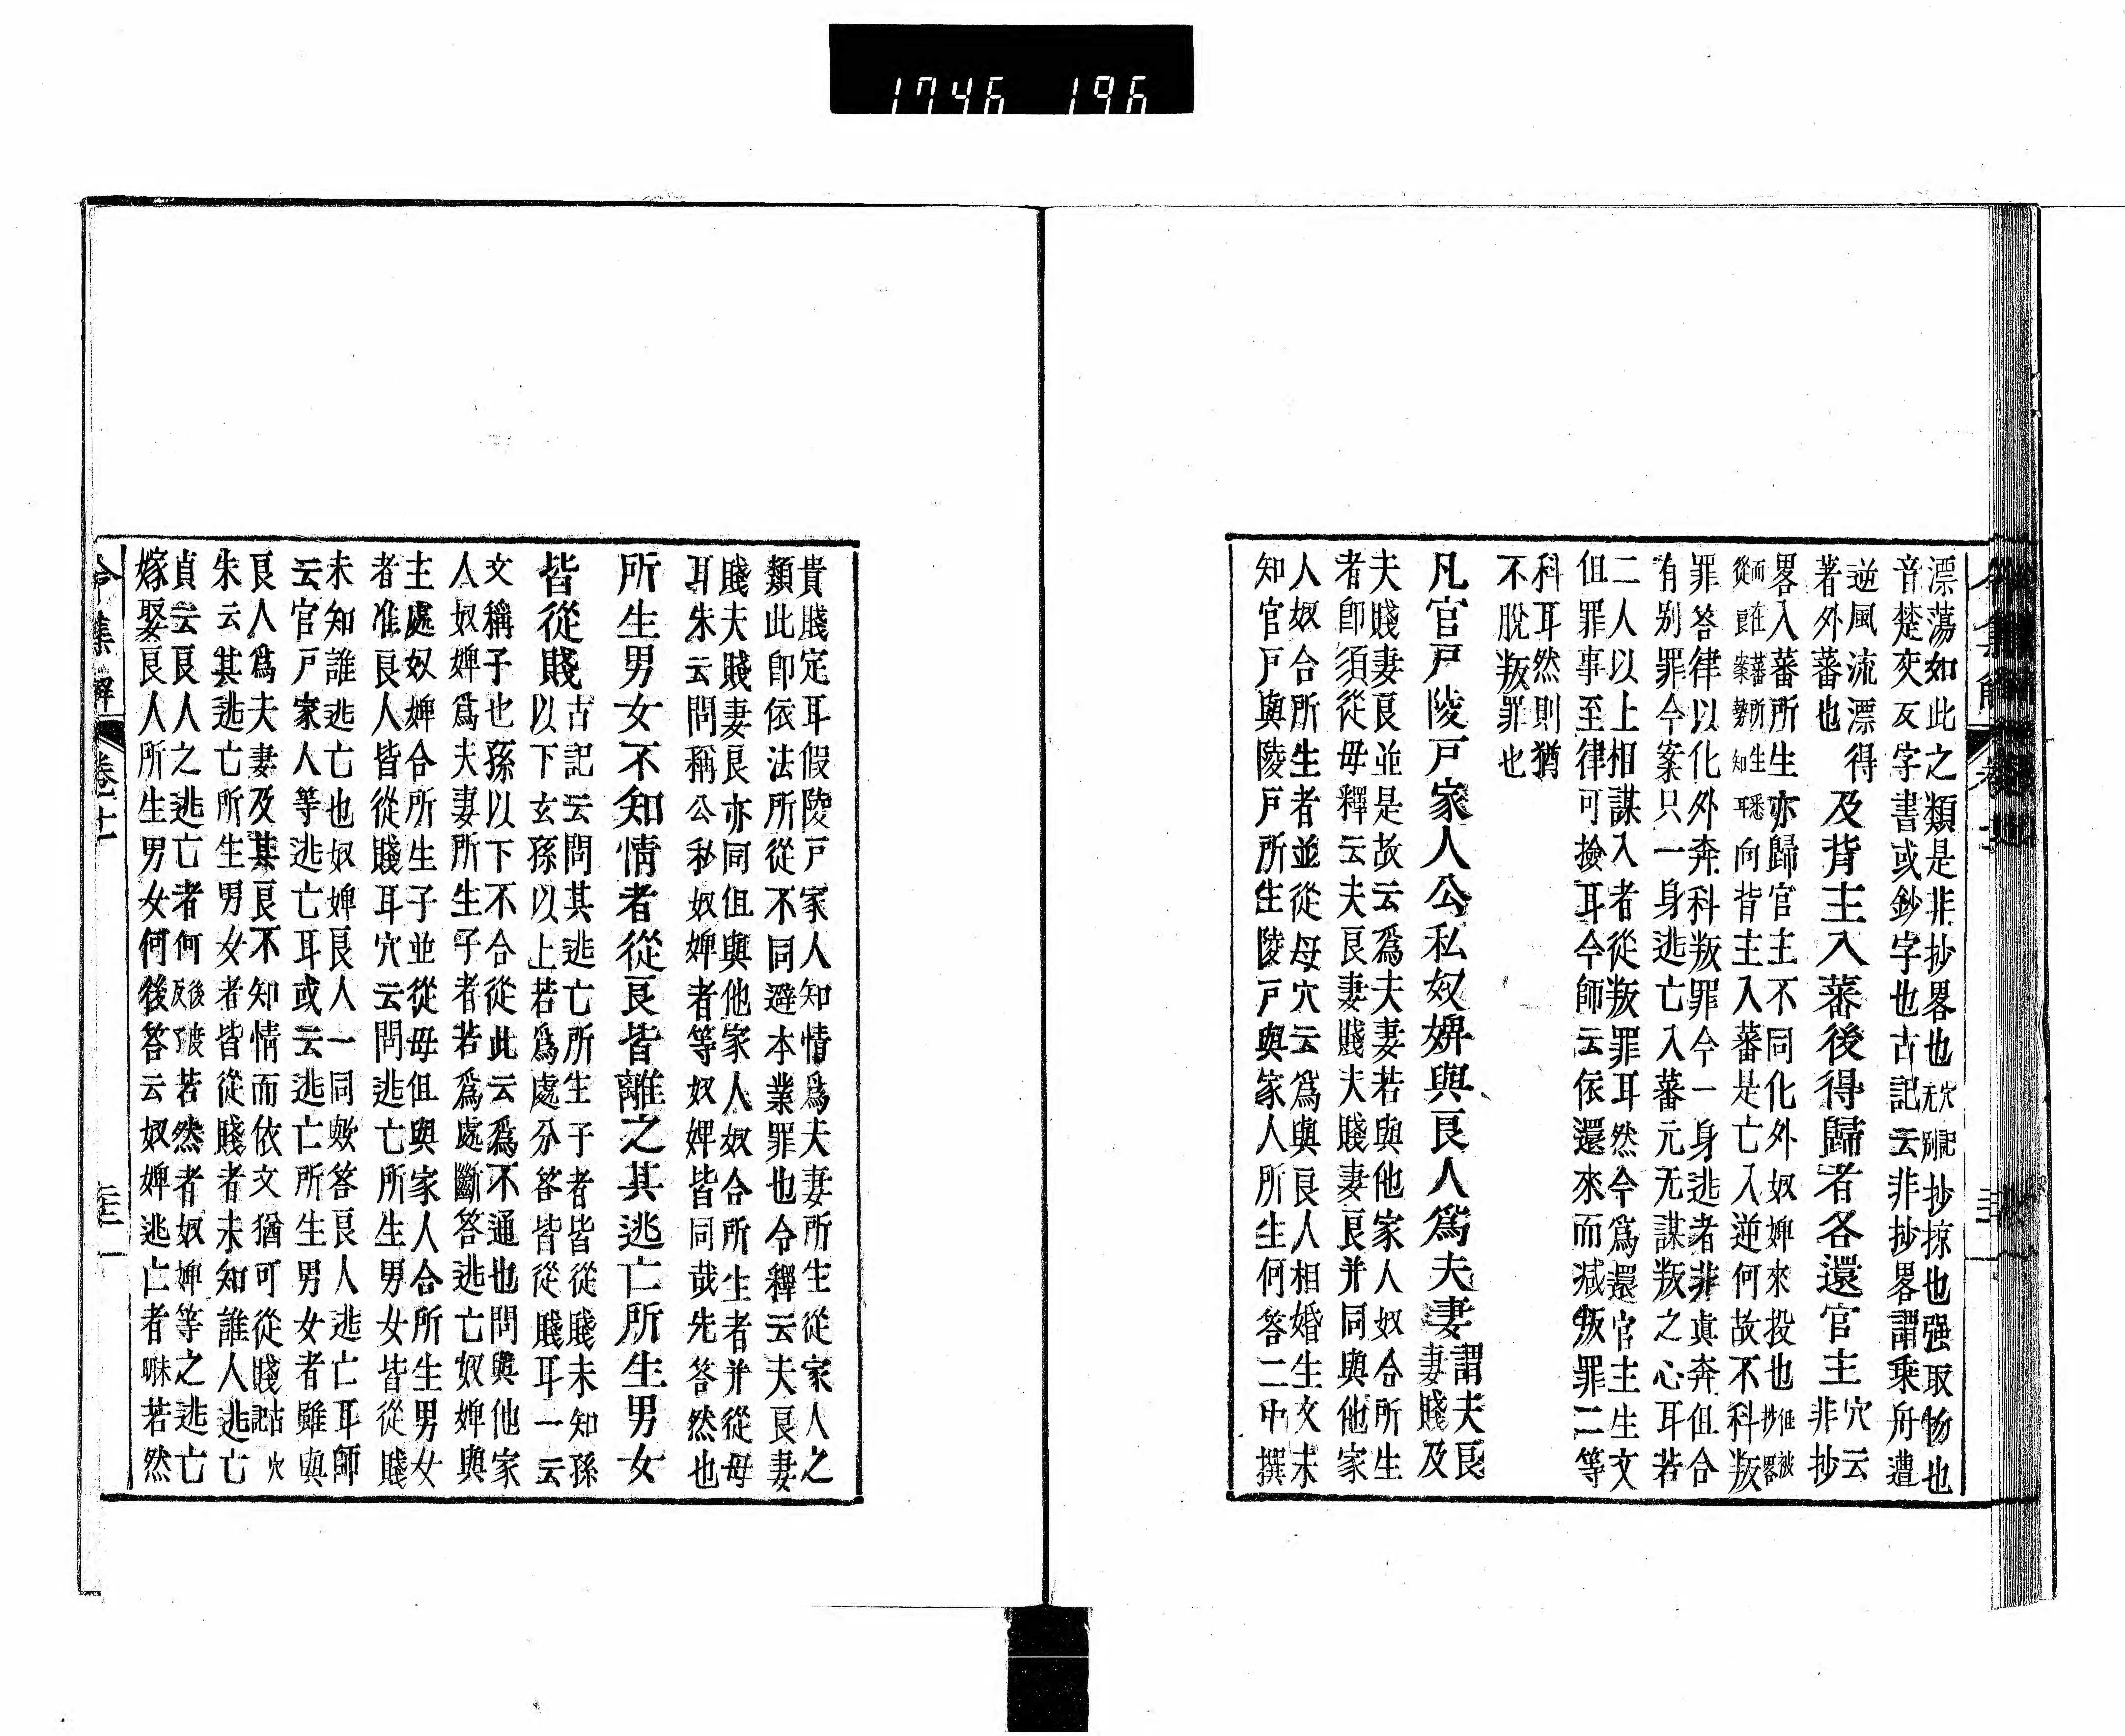 1746 196
漂蕩如此之類是非抄畧也穴記无別抄掠也强取物也
音楚交反字書或鈔字也古記云非抄畧謂乘舟遭
逆風流漂得
著外蕃也
及背主入蕃後得歸者各還官主
穴云
非抄
畧入蕃所生亦歸官主不同化外奴婢來投也但被抄畧
而在蕃所生悉從良案勢知耳向背主入蕃是亡入逆何故不科叛
罪答律以化外奔科叛罪今一身逃者非眞奔但合
有別罪今案只一身逃亡入蕃元无謀叛之心耳若
二人以上相謀入者從叛罪耳然今爲還官主生文
但罪事至律可撿耳今師云依還來而减叛罪二等
科耳然則猶
不脫叛罪也
凡官戸陵戸家人公私奴婢與良人爲夫妻
謂夫良
妻賤及
夫賤妻良並是故云爲夫妻若與他家人奴合所生
者即須從母釋云夫良妻賤夫賤妻良并同與他家
人奴合所生者並從母穴云爲與良人相婚生文未
知官戸與陵戸所生陵戸與家人所生何答二中撰
貴賤定耳假陵戸家人知情爲夫妻所生從家人之
類此即依法所從不同避本業罪也令釋云夫良妻
賤夫賤妻良亦同但與他家人奴合所生者并從母
耳朱云問稱公私奴婢者等奴婢皆同哉先答然也
所生男女不知情者從良皆離之其逃亡所生男女
皆從賤
古記云問其逃亡所生子者皆從賤未知孫
以下玄孫以上若爲處分答皆從賤耳一云
文稱子也孫以下不合從此云爲不通也問與他家
人奴婢爲夫妻所生子者若爲處斷答逃亡奴婢與
主處奴婢合所生子並從母但與家人合所生男女
者准良人皆從賤耳穴云問逃亡所生男女皆從賤
未知誰逃亡也奴婢良人一同歟答良人逃亡耳師
云官戸家人等逃亡耳或云逃亡所生男女者雖與
良人爲夫妻及其良不知情而依文猶可從賤古記穴
朱云其逃亡所生男女者皆從賤者未知誰人逃亡
貞云良人之逃亡者何後反了度若然者奴婢等之逃亡
嫁娶良人所生男女何後答云奴婢逃亡者㗱若然
令集解 卷十一